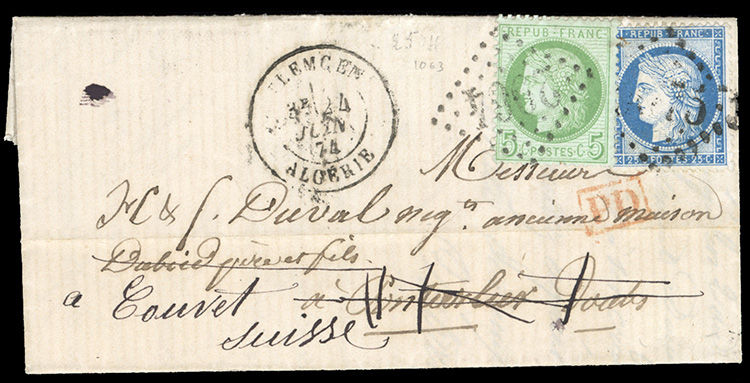 REPUB·FRANC·
5 POSTES·C· 5
REPUB·FRANC·
25·C POSTES 25·C
25 #
1063
TLEMCEN
24
JUIN
74
ALGÉRIE
PD
Messieurs
H & J. Duval négts ancienne maison
Dubied père et fils
à Pontarlier Doubs
a Couvet
Suisse